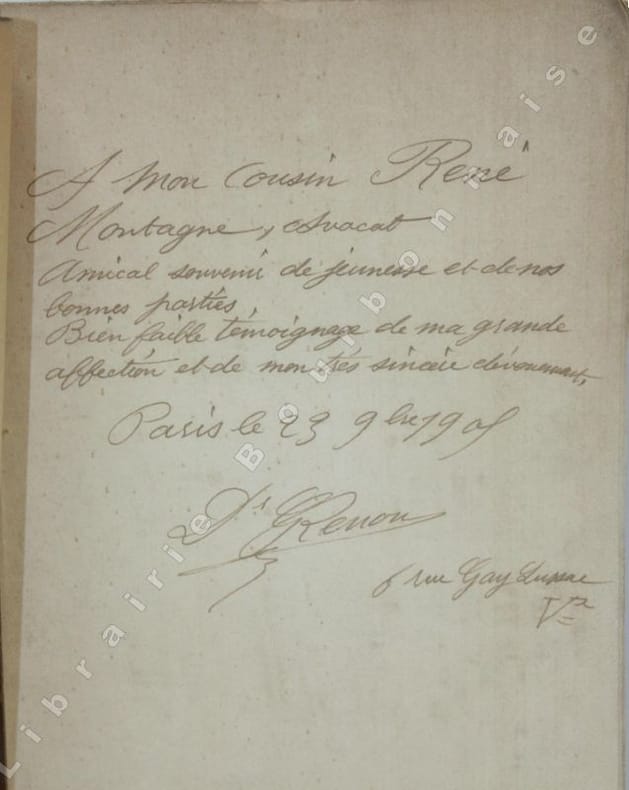 A mon cousin René
Montagne, avocat
Amical souvenir de jeunesse et de nos
bonnes parties,
Bien faible témoignage de ma grande
affection et de mon très sincère dévouement,
Paris le 23 9bre 190
Dr GRenon
6 rue Gay Lussac
Ve
Librairie Bourbonnaise